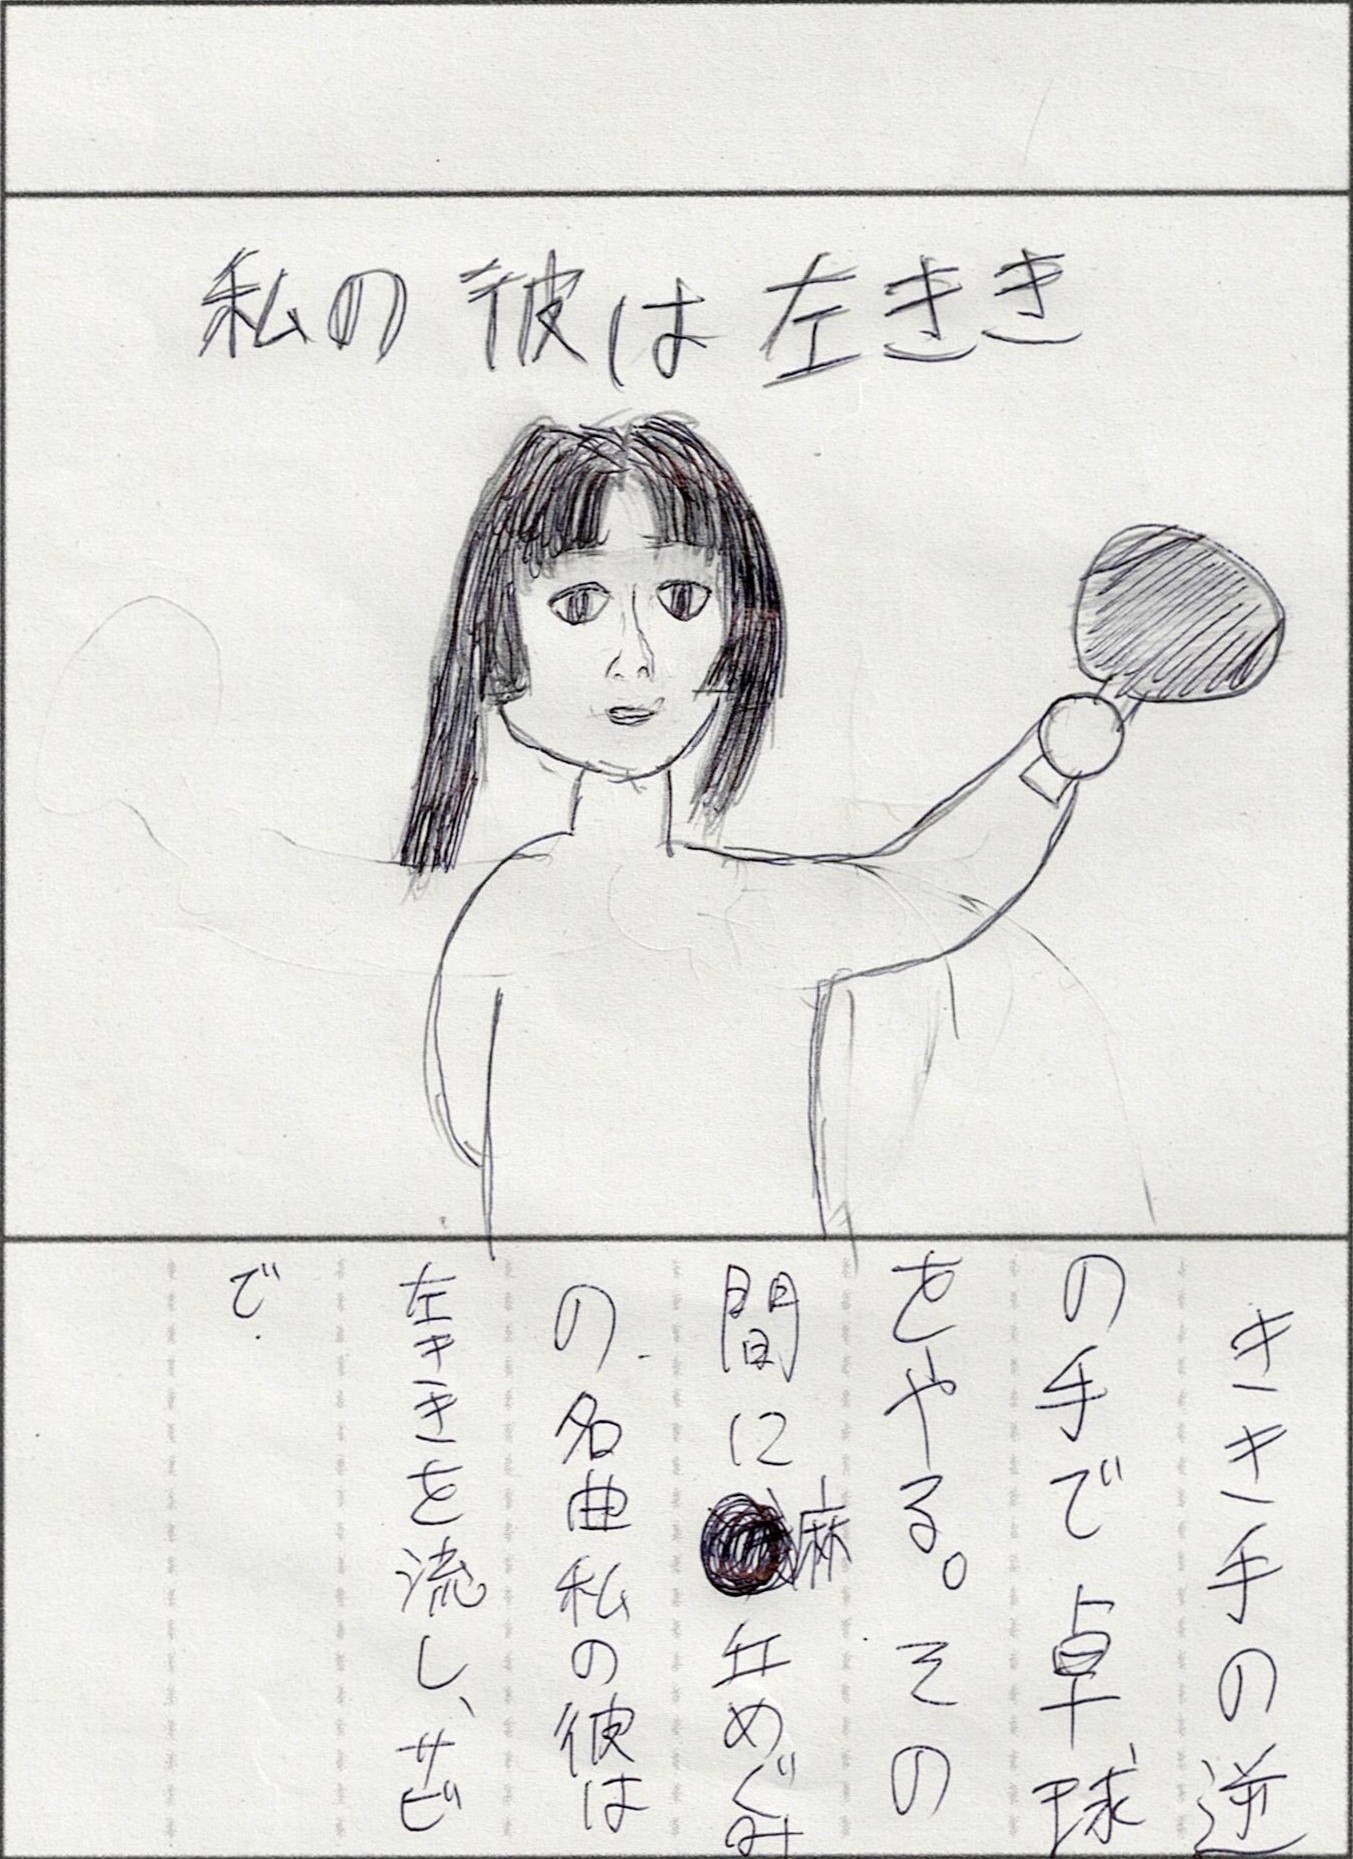 私の彼は左きき
きき手の逆
の手で卓球
をやる。その
間に麻丘めぐみ
の名曲私の彼は
左ききを流し、サビ
で